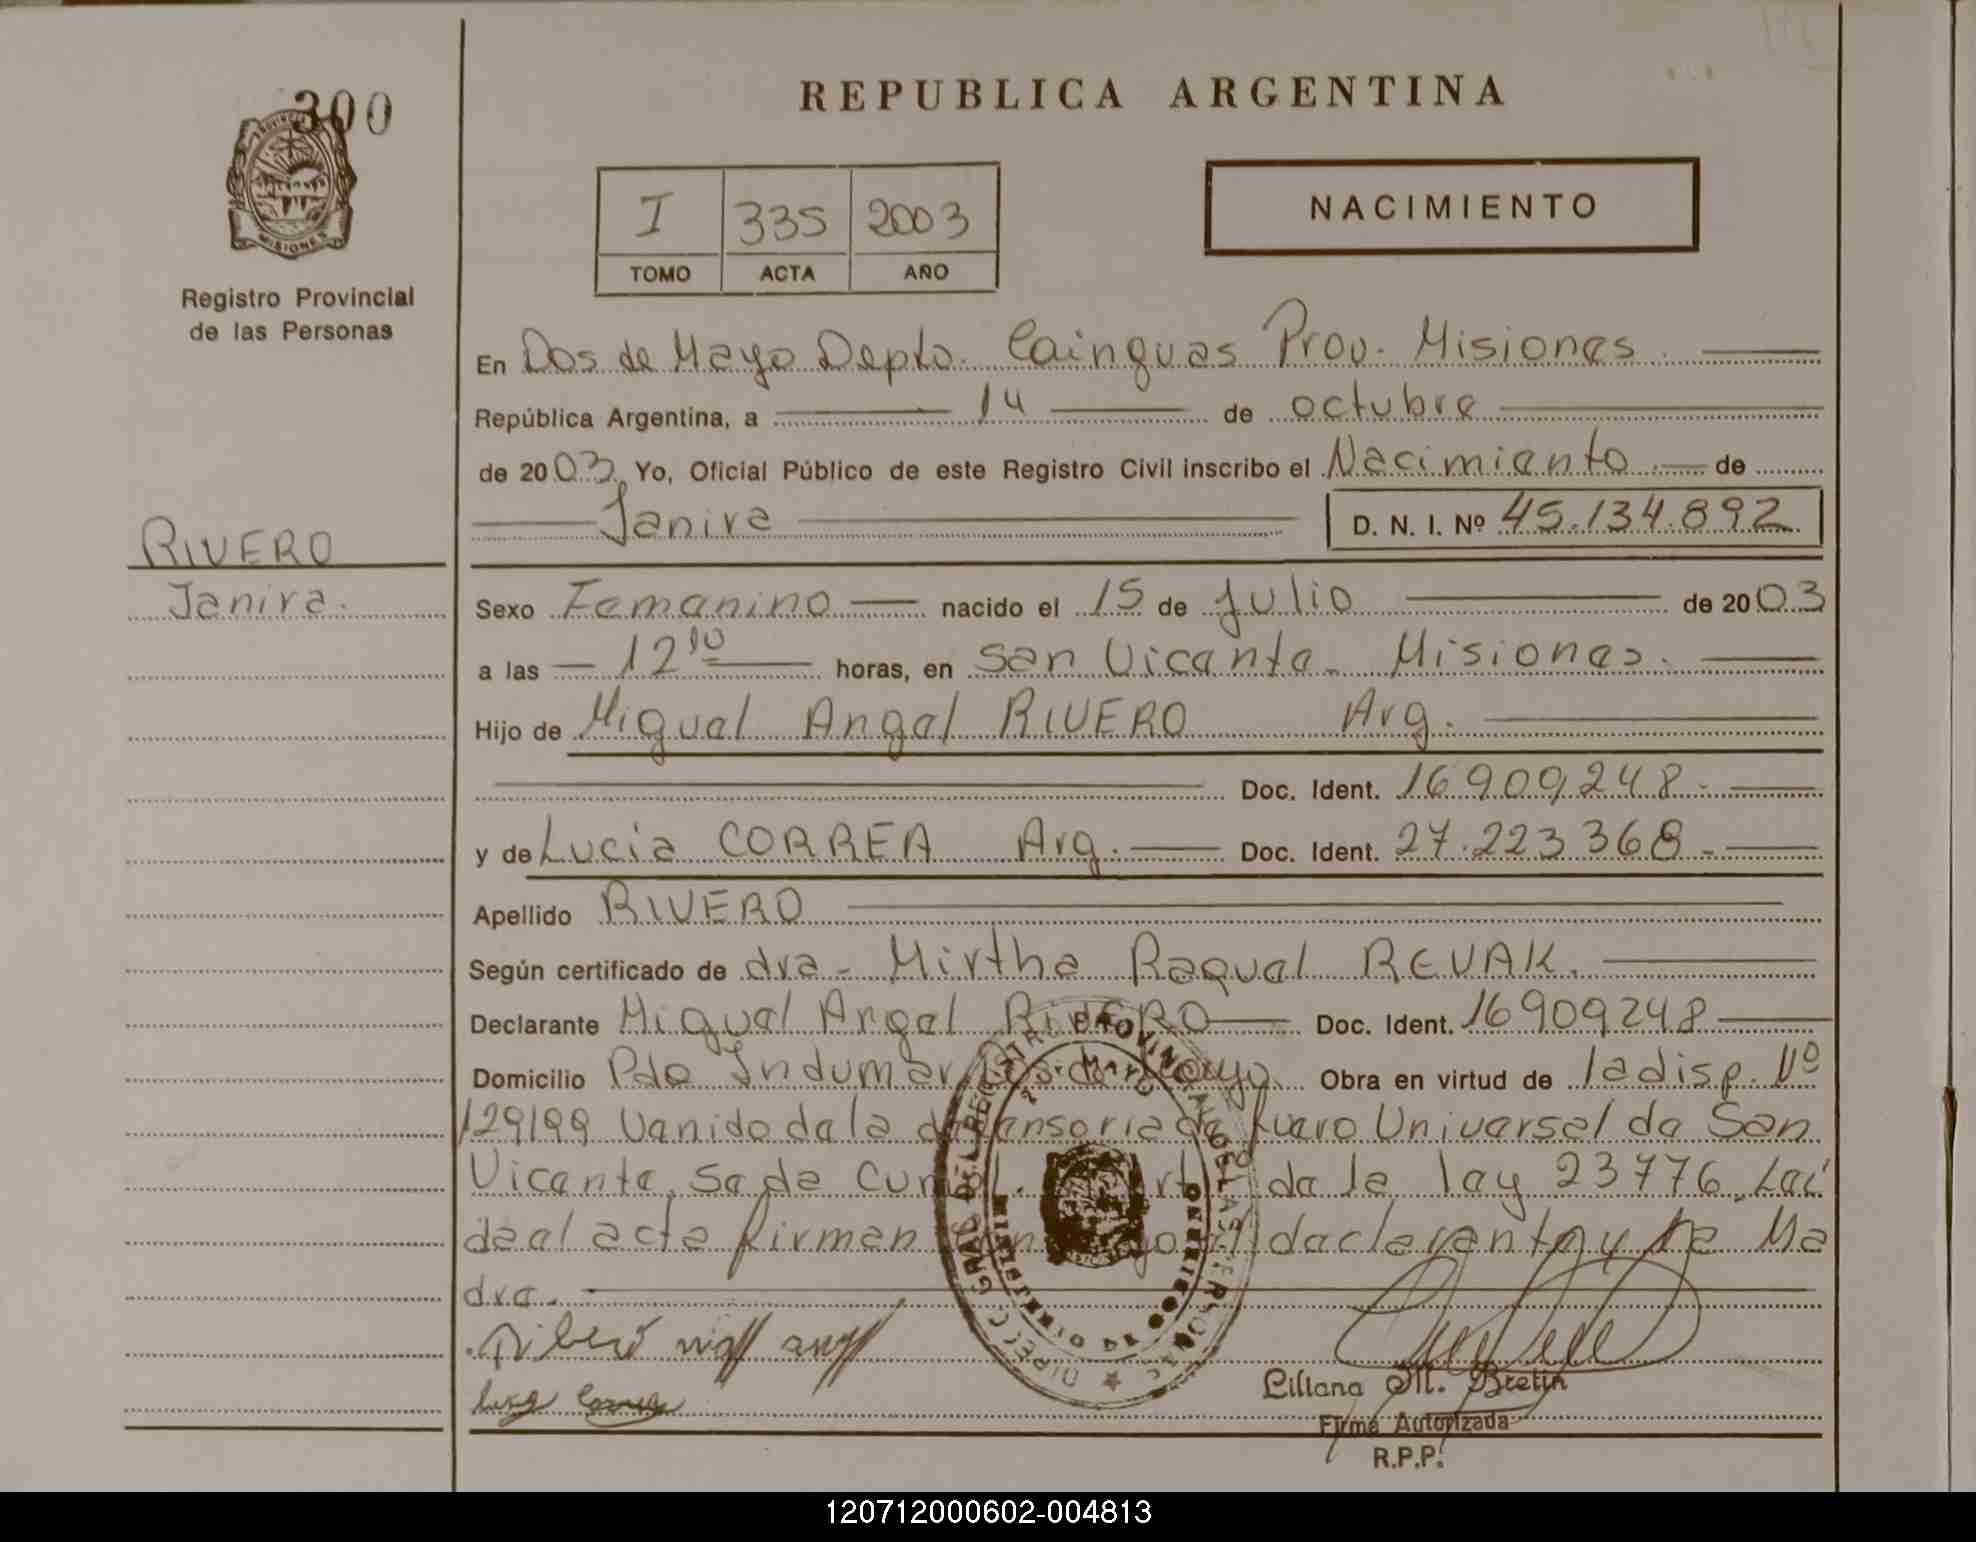 300
PROVINCIA
MISIONES
Registro Provincial
de las Personas
RIVERO
Janira.
REPUBLICA ARGENTINA
I 335 2003
TOMO ACTA AÑO
NACIMIENTO
En Dos de Mayo Depto. Cainguas Prov. Misiones.
República Argentina, a 14 de octubre
de 2003. Yo, Oficial Público de este Registro Civil inscribo el Nacimiento de
Janira D. N. I. Nº 45.134.892
Sexo Femenino nacido el 15 de Julio de 2003
a las 12 10 horas, en San Vicente - Misiones.
Hijo de Miguel Angel RIVERO Arg.
Doc. Ident. 16909248 -
y de Lucia CORREA Arg. Doc. Ident. 27.223368 -
Apellido RIVERO
Según certificado de dra - Mirtha Raquel REVAK.
Declarante Miguel Angel RIVERO Doc. Ident. 16909248
Domicilio Pdo Indumar Dos de Mayo Obra en virtud de la disp. Nº
129199 Venido de la defensoria de fuero Universal de San
Vicente, se da de la ley 23776. Lei
da el acta firman declarante y la Ma
dre.
Liliana M. Bretin
Firma Autorizada
R.P.P.
120712000602-004813